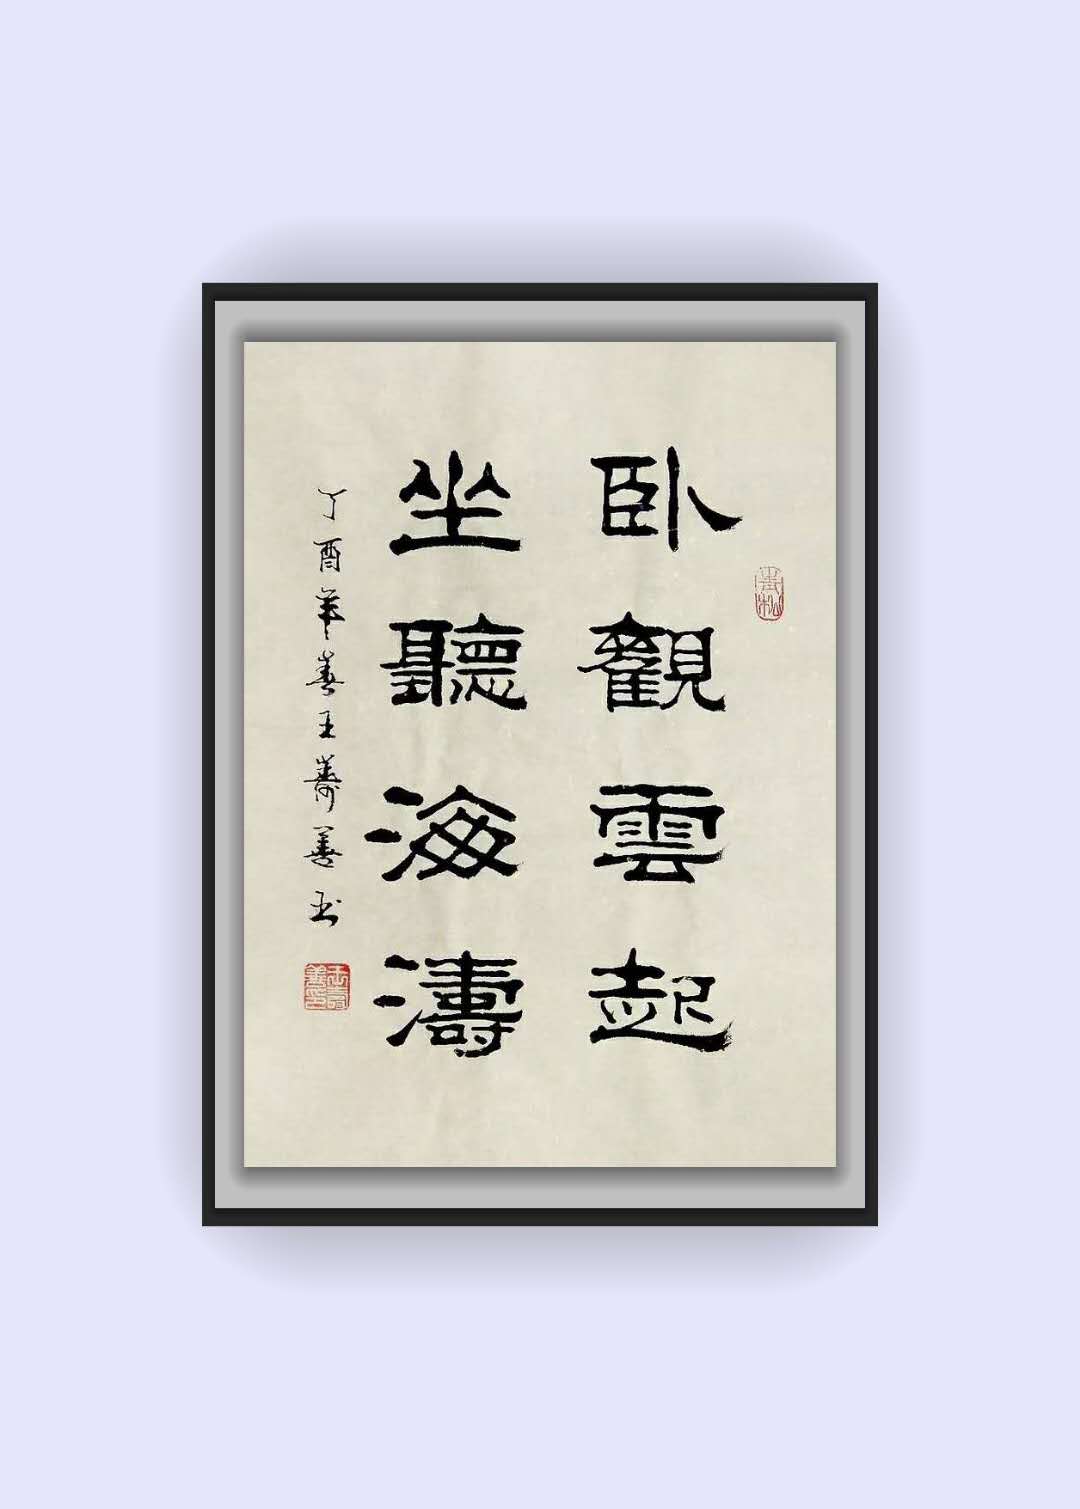 臥觀雲起
坐聽海濤
丁酉年春王壽善书